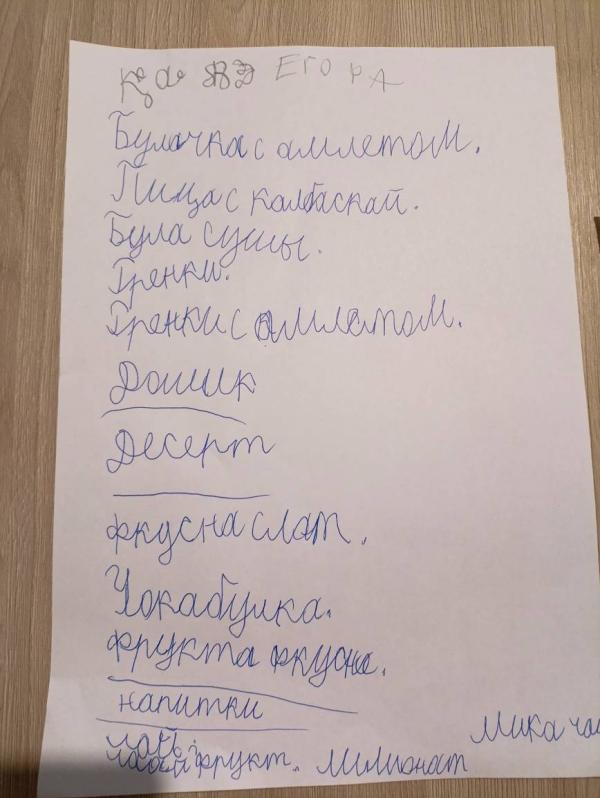 Кафэ ЕГОРА
Булачка с амлетом.
Пица с калбаскай.
Була сушы.
Гренки.
Гренки с амлетом.
Дошик
Десерт
фкусна слат.
Чокабулка.
фрукта фкусна.
напитки
чай.
чаай фрукт. лимонат
Мика